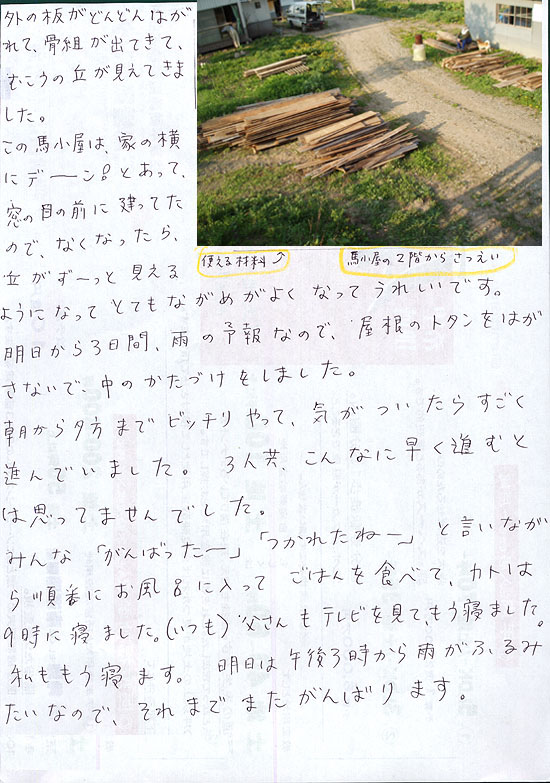 外の板がどんどんはが
れて、骨組が出てきて、
むこうの丘が見えてきま
した。
この馬小屋は、家の横
にデーン!とあって、
窓の目の前に建ってた
ので、なくなったら、
丘がずーっと見える
使える材料↑
馬小屋の2階からさつえい
ようになってとてもながめがよくなってうれしいです。
明日から3日間、雨の予報なので、屋根のトタンをはが
さないで、中のかたづけをしました。
朝から夕方までビッチリやって、気がついたらすごく
進んでいました。3人共、こんなに早く進むと
は思ってませんでした。
みんな「がんばったー」「つかれたねー」と言いなが
ら順番にお風呂に入ってごはんを食べて、カトは
9時に寝ました。(いつも)父さんもテレビを見て、もう寝ました。
私ももう寝ます。明日は午後3時から雨がふるみ
たいなので、それまでまたがんばります。